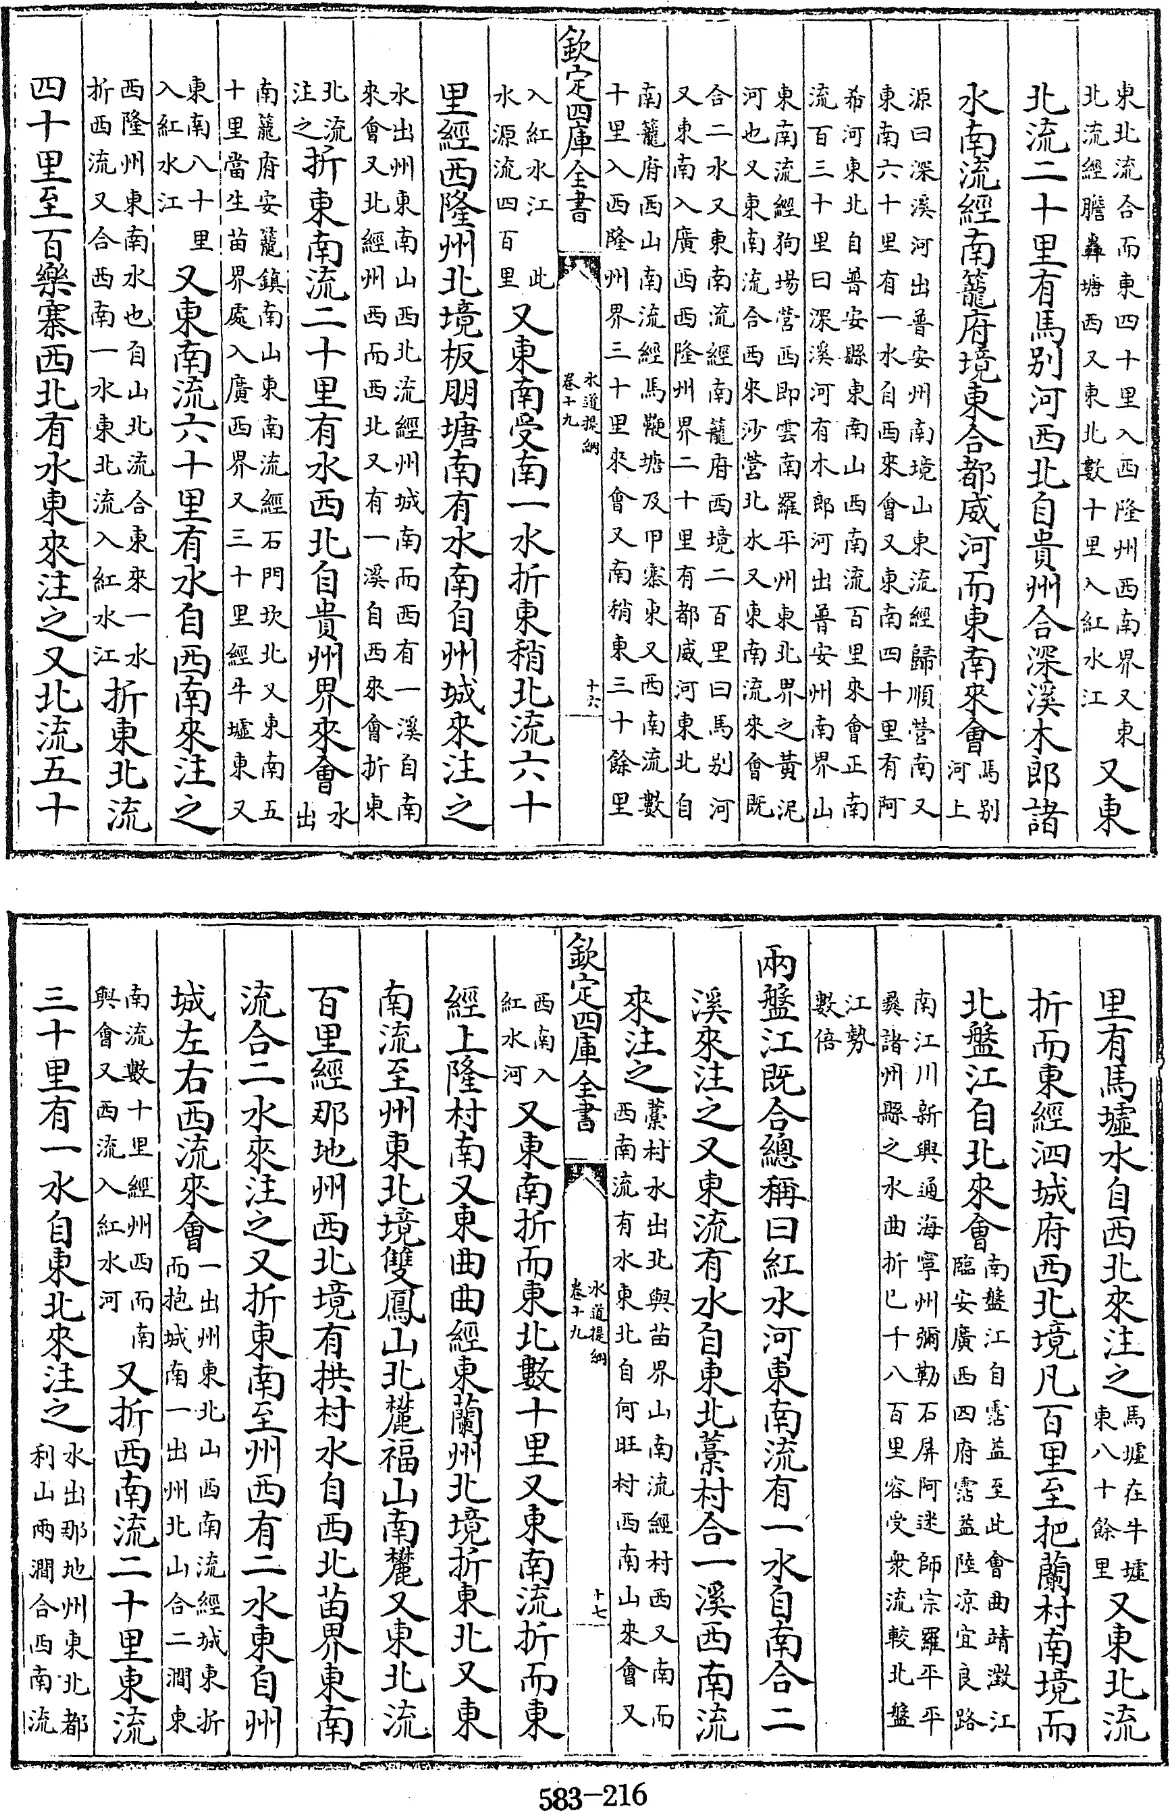 東北流合而東四十里入西隆州西南界又東
北流經膽彝塘西又東北數十里入紅水江
又東
北流二十里有馬别河西北自貴州合深溪木郎諸
水南流經南籠府境東合都威河而東南來會
馬别
河上
源曰深溪河出普安州南境山東流經歸順營南又
東南六十里有一水自西來會又東南四十里有阿
希河東北自普安縣東南山西南流百里來會正南
流百三十里曰深溪河有木郎河出普安州南界山
東南流經狗場營西即雲南羅平州東北界之黃泥
河也又東南流合西來沙營北水又東南流來會既
合二水又東南流經南籠府西境二百里曰馬别河
又東南入廣西西隆州界二十里有都威河東北自
南籠府西山南流經馬鞭塘及甲寨東又西南流數
十里入西隆州界三十里來會又南稍東三十餘里
欽定四庫全書
水道提綱
卷十九
十六
入紅水江此
水源流四百里
又東南受南一水折東稍北流六十
里經西隆州北境板朋塘南有水南自州城來注之
水出州東南山西北流經州城南而西有一溪自南
來會又北經州西而西北又有一溪自西來會折東
北流
注之
折東南流二十里有水西北自貴州界來會
水
出
南籠府安籠鎮南山東南流經石門坎北又東南五
十里當生苗界處入廣西界又三十里經牛墟東又
東南八十里
入紅水江
又東南流六十里有水自西南來注之
西隆州東南水也自山北流合東來一水
折西流又合西南一水東北流入紅水江
折東北流
四十里至百樂寨西北有水東來注之又北流五十
里有馬墟水自西北來注之
馬墟在牛墟
東八十餘里
又東北流
折而東經泗城府西北境凡百里至把蘭村南境而
北盤江自北來會
南盤江自霑益至此會曲靖澂江
臨安廣西四府霑益陸涼宜良路
南江川新興通海寧州彌勒石屏阿迷師宗羅平平
彝諸州縣之水曲折已千八百里容受衆流較北盤
江勢
數倍
兩盤江既合總稱曰紅水河東南流有一水自南合二
溪來注之又東流有水自東北藁村合一溪西南流
來注之
藁村水出北與苗界山南流經村西又南而
西南流有水東北自何旺村西南山來會又
欽定四庫全書
水道提綱
卷十九
十七
西南入
紅水河
又東南折而東北數十里又東南流折而東
經上隆村南又東曲曲經東蘭州北境折東北又東
南流至州東北境雙鳳山北麓福山南麓又東北流
百里經那地州西北境有拱村水自西北苗界東南
流合二水來注之又折東南至州西有二水東自州
城左右西流來會
一出州東北山西南流經城東折
而抱城南一出州北山合二澗東
南流數十里經州西而南
與會又西流入紅水河
又折西南流二十里東流
三十里有一水自東北來注之
水出那地州東北都
利山兩澗合西南流
583-216